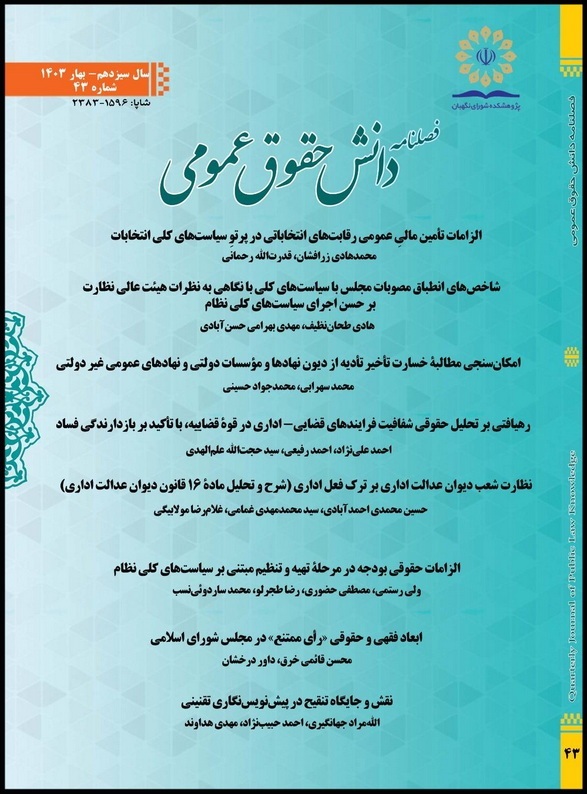 سال سیزدهم- بهار ۱۴۰۳
شماره ۴۳
شاپا: ۱۵۹۶-۲۳۸۳
پژوهشکده شورای نگهبان
فصلنامه
دانش حقوق عمومی
الزامات تأمین مالیِ عمومی رقابت‌های انتخاباتی در پرتوِ سیاست‌های کلی انتخابات
محمدهادی زرافشان، قدرت‌الله رحمانی
شاخص‌های انطباق مصوبات مجلس با سیاست‌های کلی با نگاهی به نظرات هیئت عالی نظارت
بر حسن اجرای سیاست‌های کلی نظام
هادی طحان‌نظیف، مهدی بهرامی حسن‌آبادی
امکان‌سنجی مطالبهٔ خسارت تأخیر تأدیه از دیون نهادها و مؤسسات دولتی و نهادهای عمومی غیر دولتی
محمد سهرابی، محمدجواد حسینی
رهیافتی بر تحلیل حقوقی شفافیت فرایندهای قضایی- اداری در قوهٔ قضاییه، با تأکید بر بازدارندگی فساد
احمد علی‌نژاد، احمد رفیعی، سید حجت‌الله علم‌الهدی
نظارت شعب دیوان عدالت اداری بر ترک فعل اداری (شرح و تحلیل مادهٔ ۱۶ قانون دیوان عدالت اداری)
حسین محمدی احمدآبادی، سید محمدمهدی غمامی، غلام‌رضا مولابیگی
الزامات حقوقی بودجه در مرحلهٔ تهیه و تنظیم مبتنی بر سیاست‌های کلی نظام
ولی رستمی، مصطفی حضوری، رضا طجرلو، محمد ساردوئی‌نسب
ابعاد فقهی و حقوقی «رأی ممتنع» در مجلس شورای اسلامی
محسن قائمی خرق، داور درخشان
نقش و جایگاه تنقیح در پیش‌نویس‌نگاری تقنینی
الله‌مراد جهانگیری، احمد حبیب‌نژاد، مهدی هداوند
فصلنامه دانش حقوق عمومی
Quarterly Journal of Public Law Knowledge
۴۳